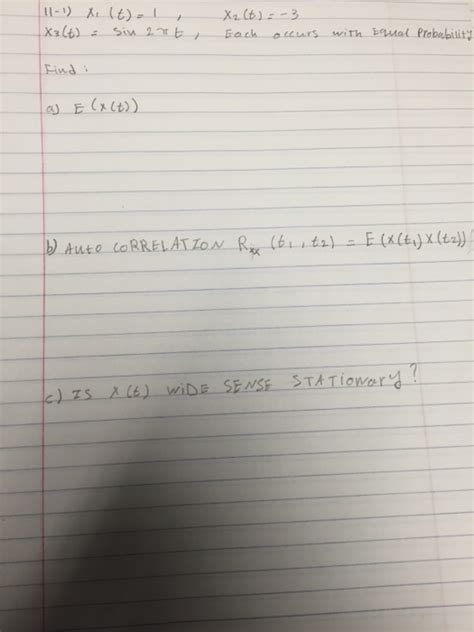 11-1) X₁(t) = 1 , X₂(t) = -3
X₃(t) = Sin 2πt , Each occurs with Equal Probability
Find :
a) E (X(t))
b) AUTO CORRELATION Rxx (t₁, t₂) = E (X(t₁) X(t₂))
c) IS X(t) WIDE SENSE STATIONARY?